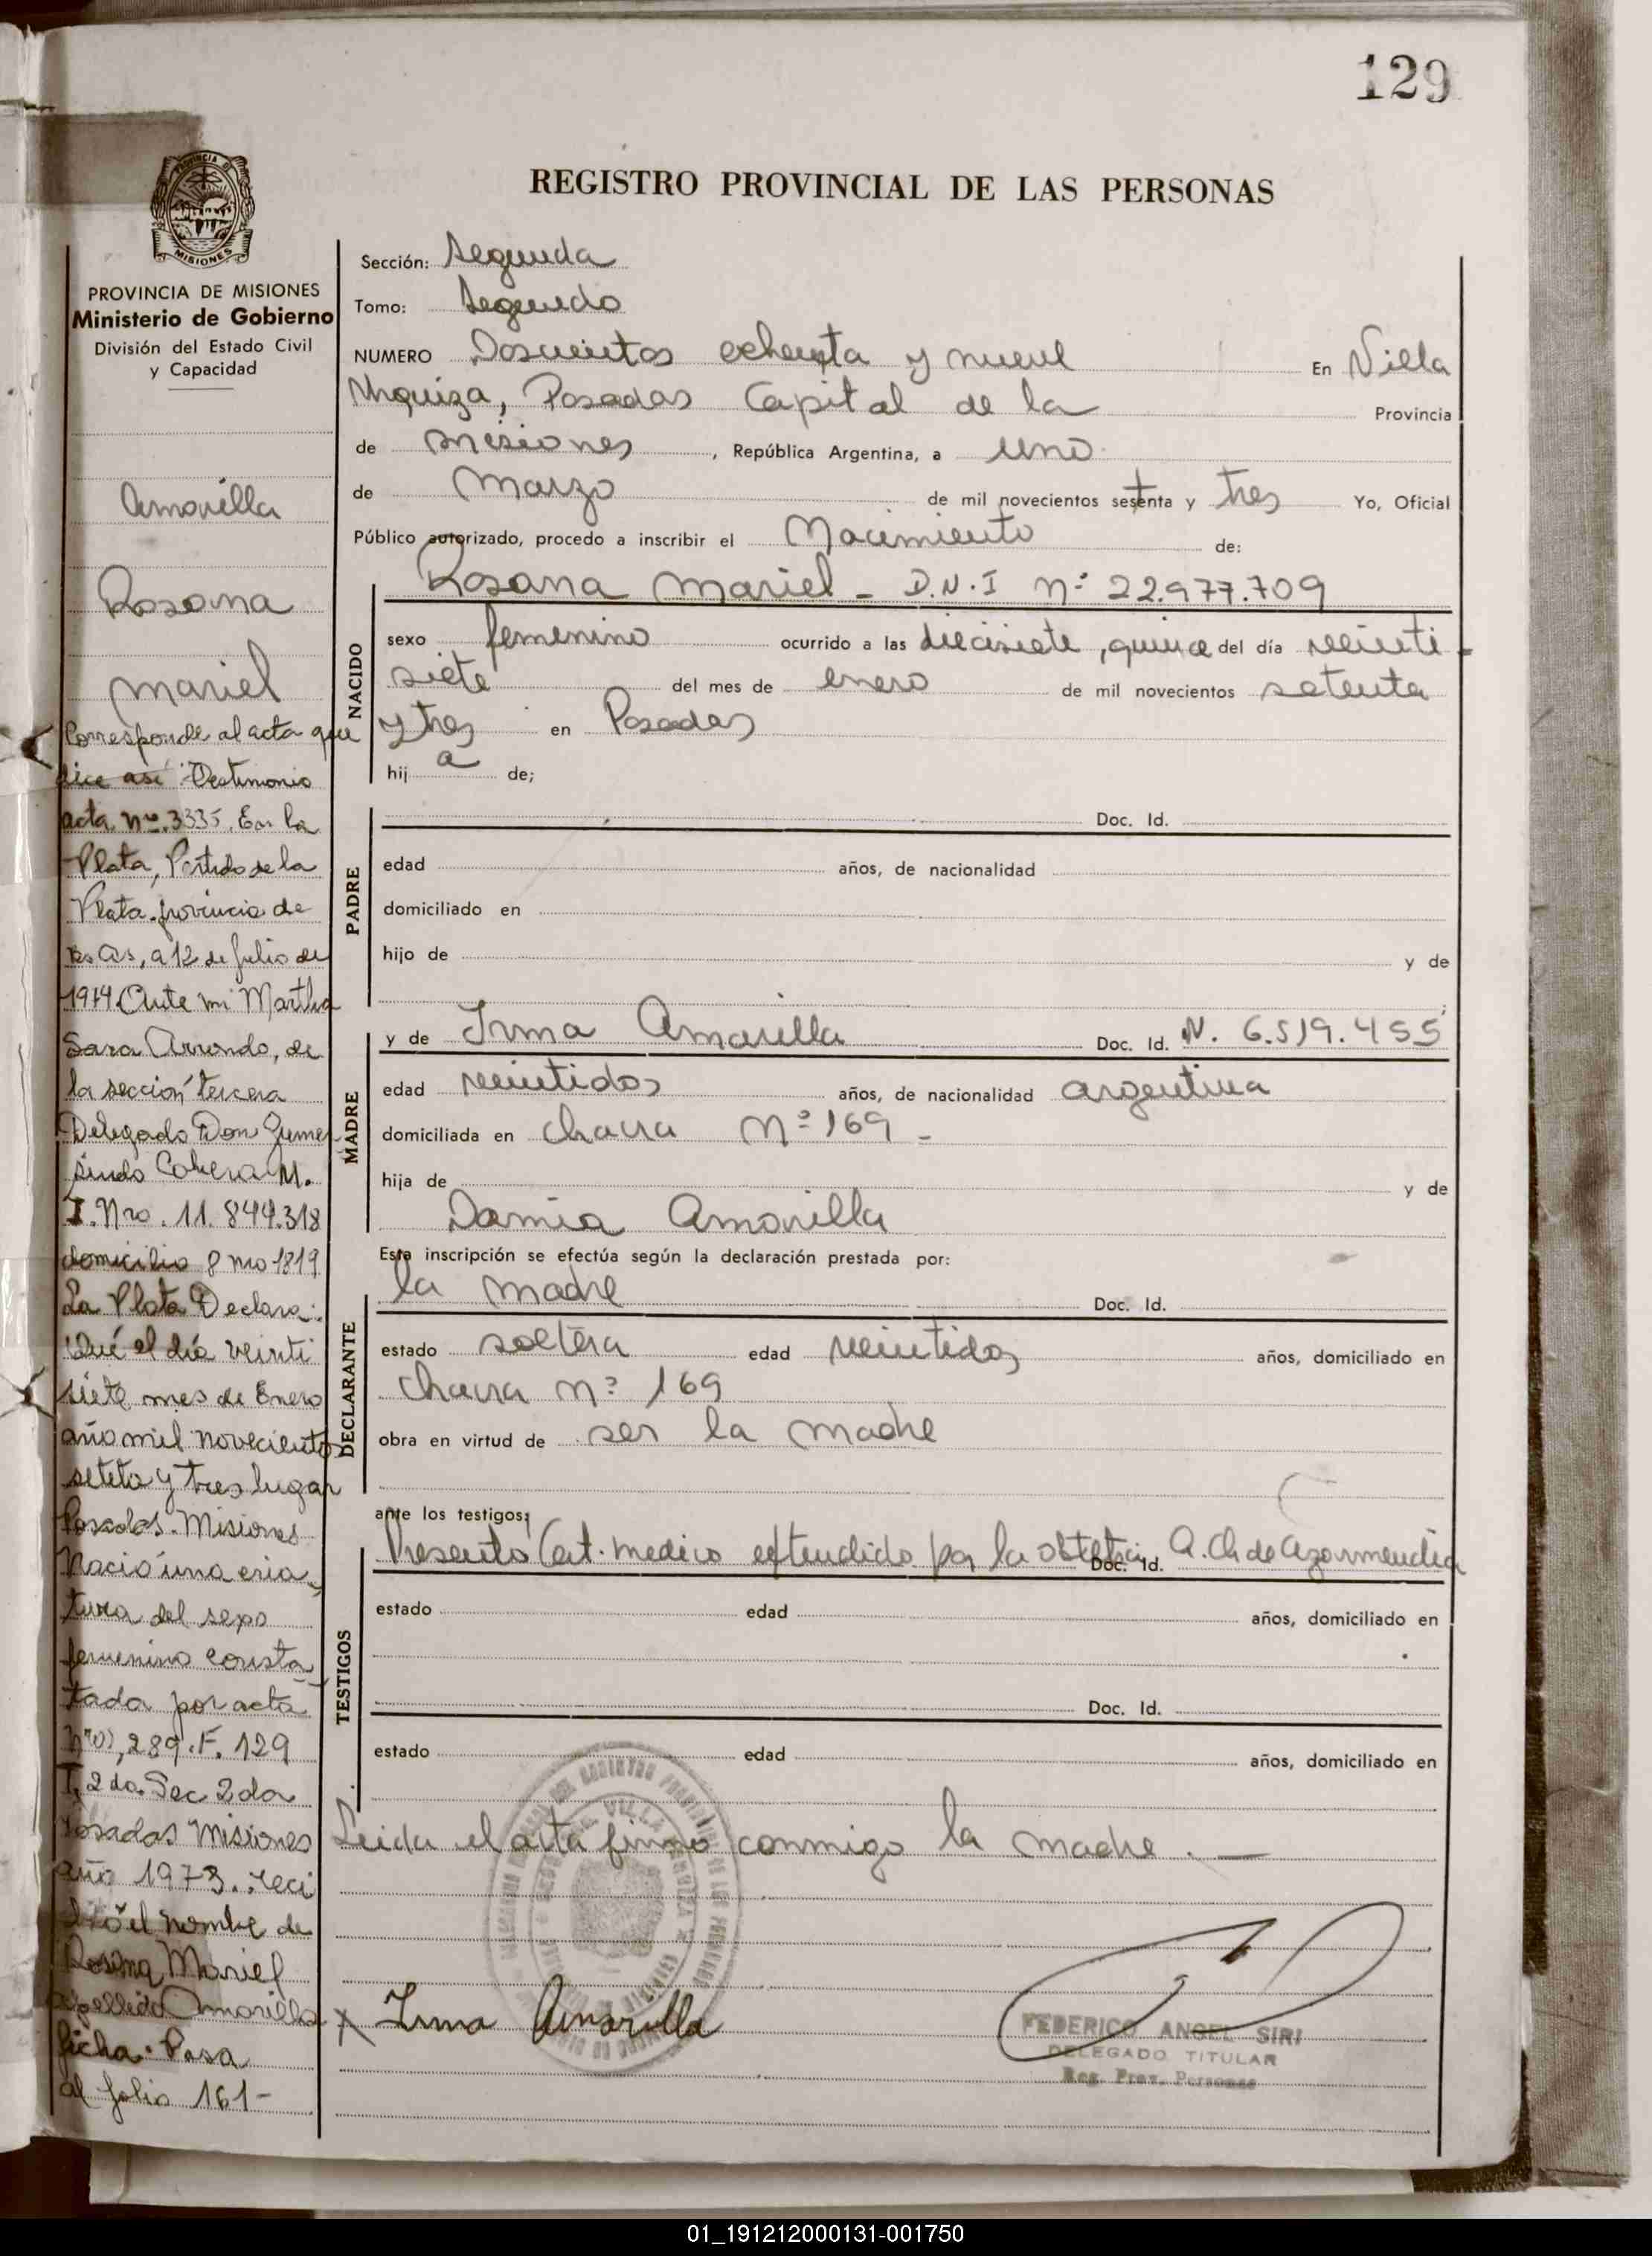 129
REGISTRO PROVINCIAL DE LAS PERSONAS
PROVINCIA DE MISIONES
Ministerio de Gobierno
División del Estado Civil
y Capacidad
Amarilla
Rosana
Mariel
Corresponde al acta que
dice así Testimonio
acta Nro. 3335. En la
Plata, Partido de la
Plata. provincia de
Bs As, a 12 de Julio de
1974 Ante mi Martha
Sara Arrondo, de
la sección tercera
Delegado Don Gumer
sindo Cabera M.
I. Nro. 11.844.318
domicilio 8 nro 1819
La Plata Declara:
Qué el día veinti
siete mes de Enero
año mil novecientos
seteta y tres lugar
Posadas. Misiones
Nació una cria
tura del sexo
femenino consta
tada por acta
289. F. 129
T. 2do. Sec 2da
Posadas Misiones
año 1973. reci
bió el nombre de
Rosana Mariel
apellido Amarilla
ficha. Pasa
al folio 161-
Sección: Segunda
Tomo: Segundo
NUMERO Doscientos ochenta y nueve En Villa
Urquiza, Posadas Capital de la Provincia
de Misiones, República Argentina, a uno
de Marzo de mil novecientos setenta y tres Yo, Oficial
Público autorizado, procedo a inscribir el Nacimiento de:
Rosana Mariel - D.N.I Nº 22.977.709
NACIDO
sexo femenino ocurrido a las diecisiete, quince del día veinti-
siete del mes de enero de mil novecientos setenta
y tres en Posadas
hija de;
PADRE
Doc. Id.
edad años, de nacionalidad
domiciliado en
hijo de y de
MADRE
y de Irma Amarilla Doc. Id. N. 6.519.455
edad veintidos años, de nacionalidad argentina
domiciliada en chacra Nº 169 -
hija de y de
Damia Amarilla
Esta inscripción se efectúa según la declaración prestada por:
DECLARANTE
la madre Doc. Id.
estado soltera edad veintidos años, domiciliado en
chacra nº 169
obra en virtud de ser la madre
ante los testigos:
TESTIGOS
Presentó Cert. medico extendido por la obstetra Doc. Id. A. Ch de Azarmendia
estado edad años, domiciliado en
Doc. Id.
estado edad años, domiciliado en
Leida el acta firmo conmigo la madre. —
x Irma Amarilla
FEDERICO ANGEL SIRI
DELEGADO TITULAR
Reg. Prov. Personas
01_191212000131-001750